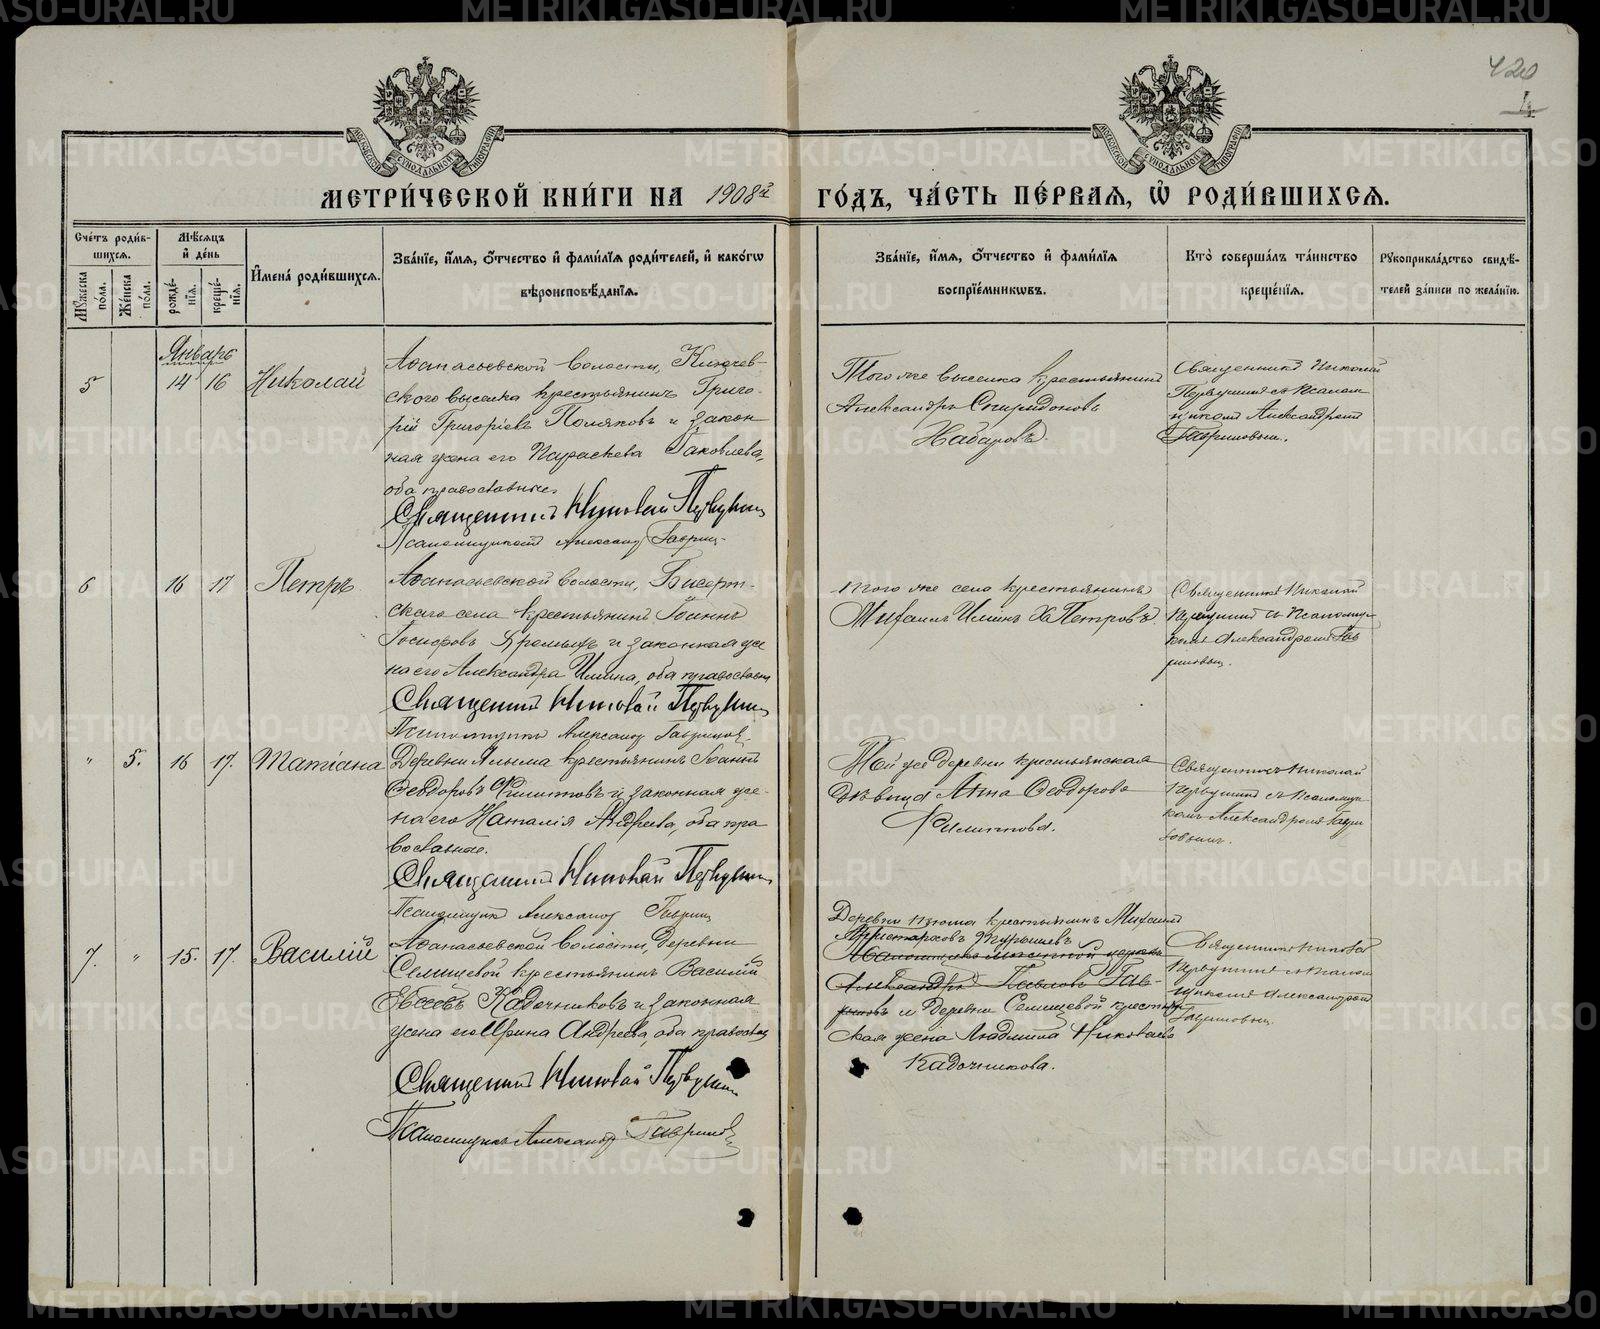 420
4
МОСКОВСКОЙ СѴНОДАЛЬНОЙ ТИПОГРАФІИ
МОСКОВСКОЙ СѴНОДАЛЬНОЙ ТИПОГРАФІИ
МЕТРИ́ЧЕСКОЙ КНИ́ГИ НА 1908й ГО́ДЪ, ЧА́СТЬ ПЕ́РВАѦ, Ѡ҆ РОДИ́ВШИХСѦ.
Сче́тъ роди́в-
шихсѧ.
Мѣ́сѧцъ
и҆ де́нь
Мꙋ́жеска по́ла.
Же́нска по́ла.
рожде́-нїѧ.
креще́-нїѧ.
И҆мена̀ роди́вшихсѧ.
Зва́нїе, и҆́мѧ, ѻ҆́тчество и҆ фами́лїѧ роди́телей, и҆ како́гѡ
вѣроисповѣ́данїѧ.
Зва́нїе, и҆́мѧ, ѻ҆́тчество и҆ фами́лїѧ
воспрїе́мникѡвъ.
Кто̀ соверша́лъ та́инство
креще́нїѧ.
Рꙋкоприкла́дство свидѣ́-
телей за́писи по жела́нїю.
Январь
5 14 16 Николай
Аѳанасьевской волости, Ключев-
скаго выселка крестьянинъ Григо-
рій Григоріевъ Поляковъ и закон-
ная жена его Параскева Іаковлева,
оба православные.
Священникъ Николай Первушинъ
Псаломщикъ Александръ
Того же выселка крестьянинъ
Александръ Спиридоновъ
Набаровъ.
Священникъ Николай
Первушинъ съ Псалом-
щикомъ Александромъ
6 16 17 Петръ
Аѳанасьевской волости, Бисерт-
скаго села крестьянинъ Іоаннъ
Іосифовъ и законная же-
на его Александра Ильина, оба православны
Священникъ Николай Первушинъ
Псаломщикъ Александръ
того же села крестьянинъ
Михаилъ Ильинъ Петровъ.
Священникъ Николай
Первушинъ съ Псаломщи-
комъ Александромъ Гав
" 5. 16 17. Татіана
Деревни крестьянинъ Іоаннъ
Ѳеодоровъ Филипповъ и законная же-
на его Наталія Андреева, оба пра-
вославные.
Священникъ Николай Первушинъ
Псаломщикъ Александръ
Той же деревни крестьянская
дѣвица Анна Ѳеодорова
Филиппова.
Священникъ Николай
Первушинъ съ Псаломщи-
комъ Александромъ
7. " 15. 17. Василій
Аѳанасьевской волости, деревни
Селищевой крестьянинъ Василій
Кадочниковъ и законная
жена его Ирина Андреева, оба православн
Священникъ Николай Первушинъ
Псаломщикъ Александръ
Деревни крестьянинъ Михаилъ
Аристарховъ
Александръ Павловъ Гав-
и деревни Селищевой крестьян-
ская жена Людмила Николаева
Кадочникова.
Священникъ Николай
Первушинъ съ Псалом-
щикомъ Александромъ
METRIKI.GASO-URAL.RU